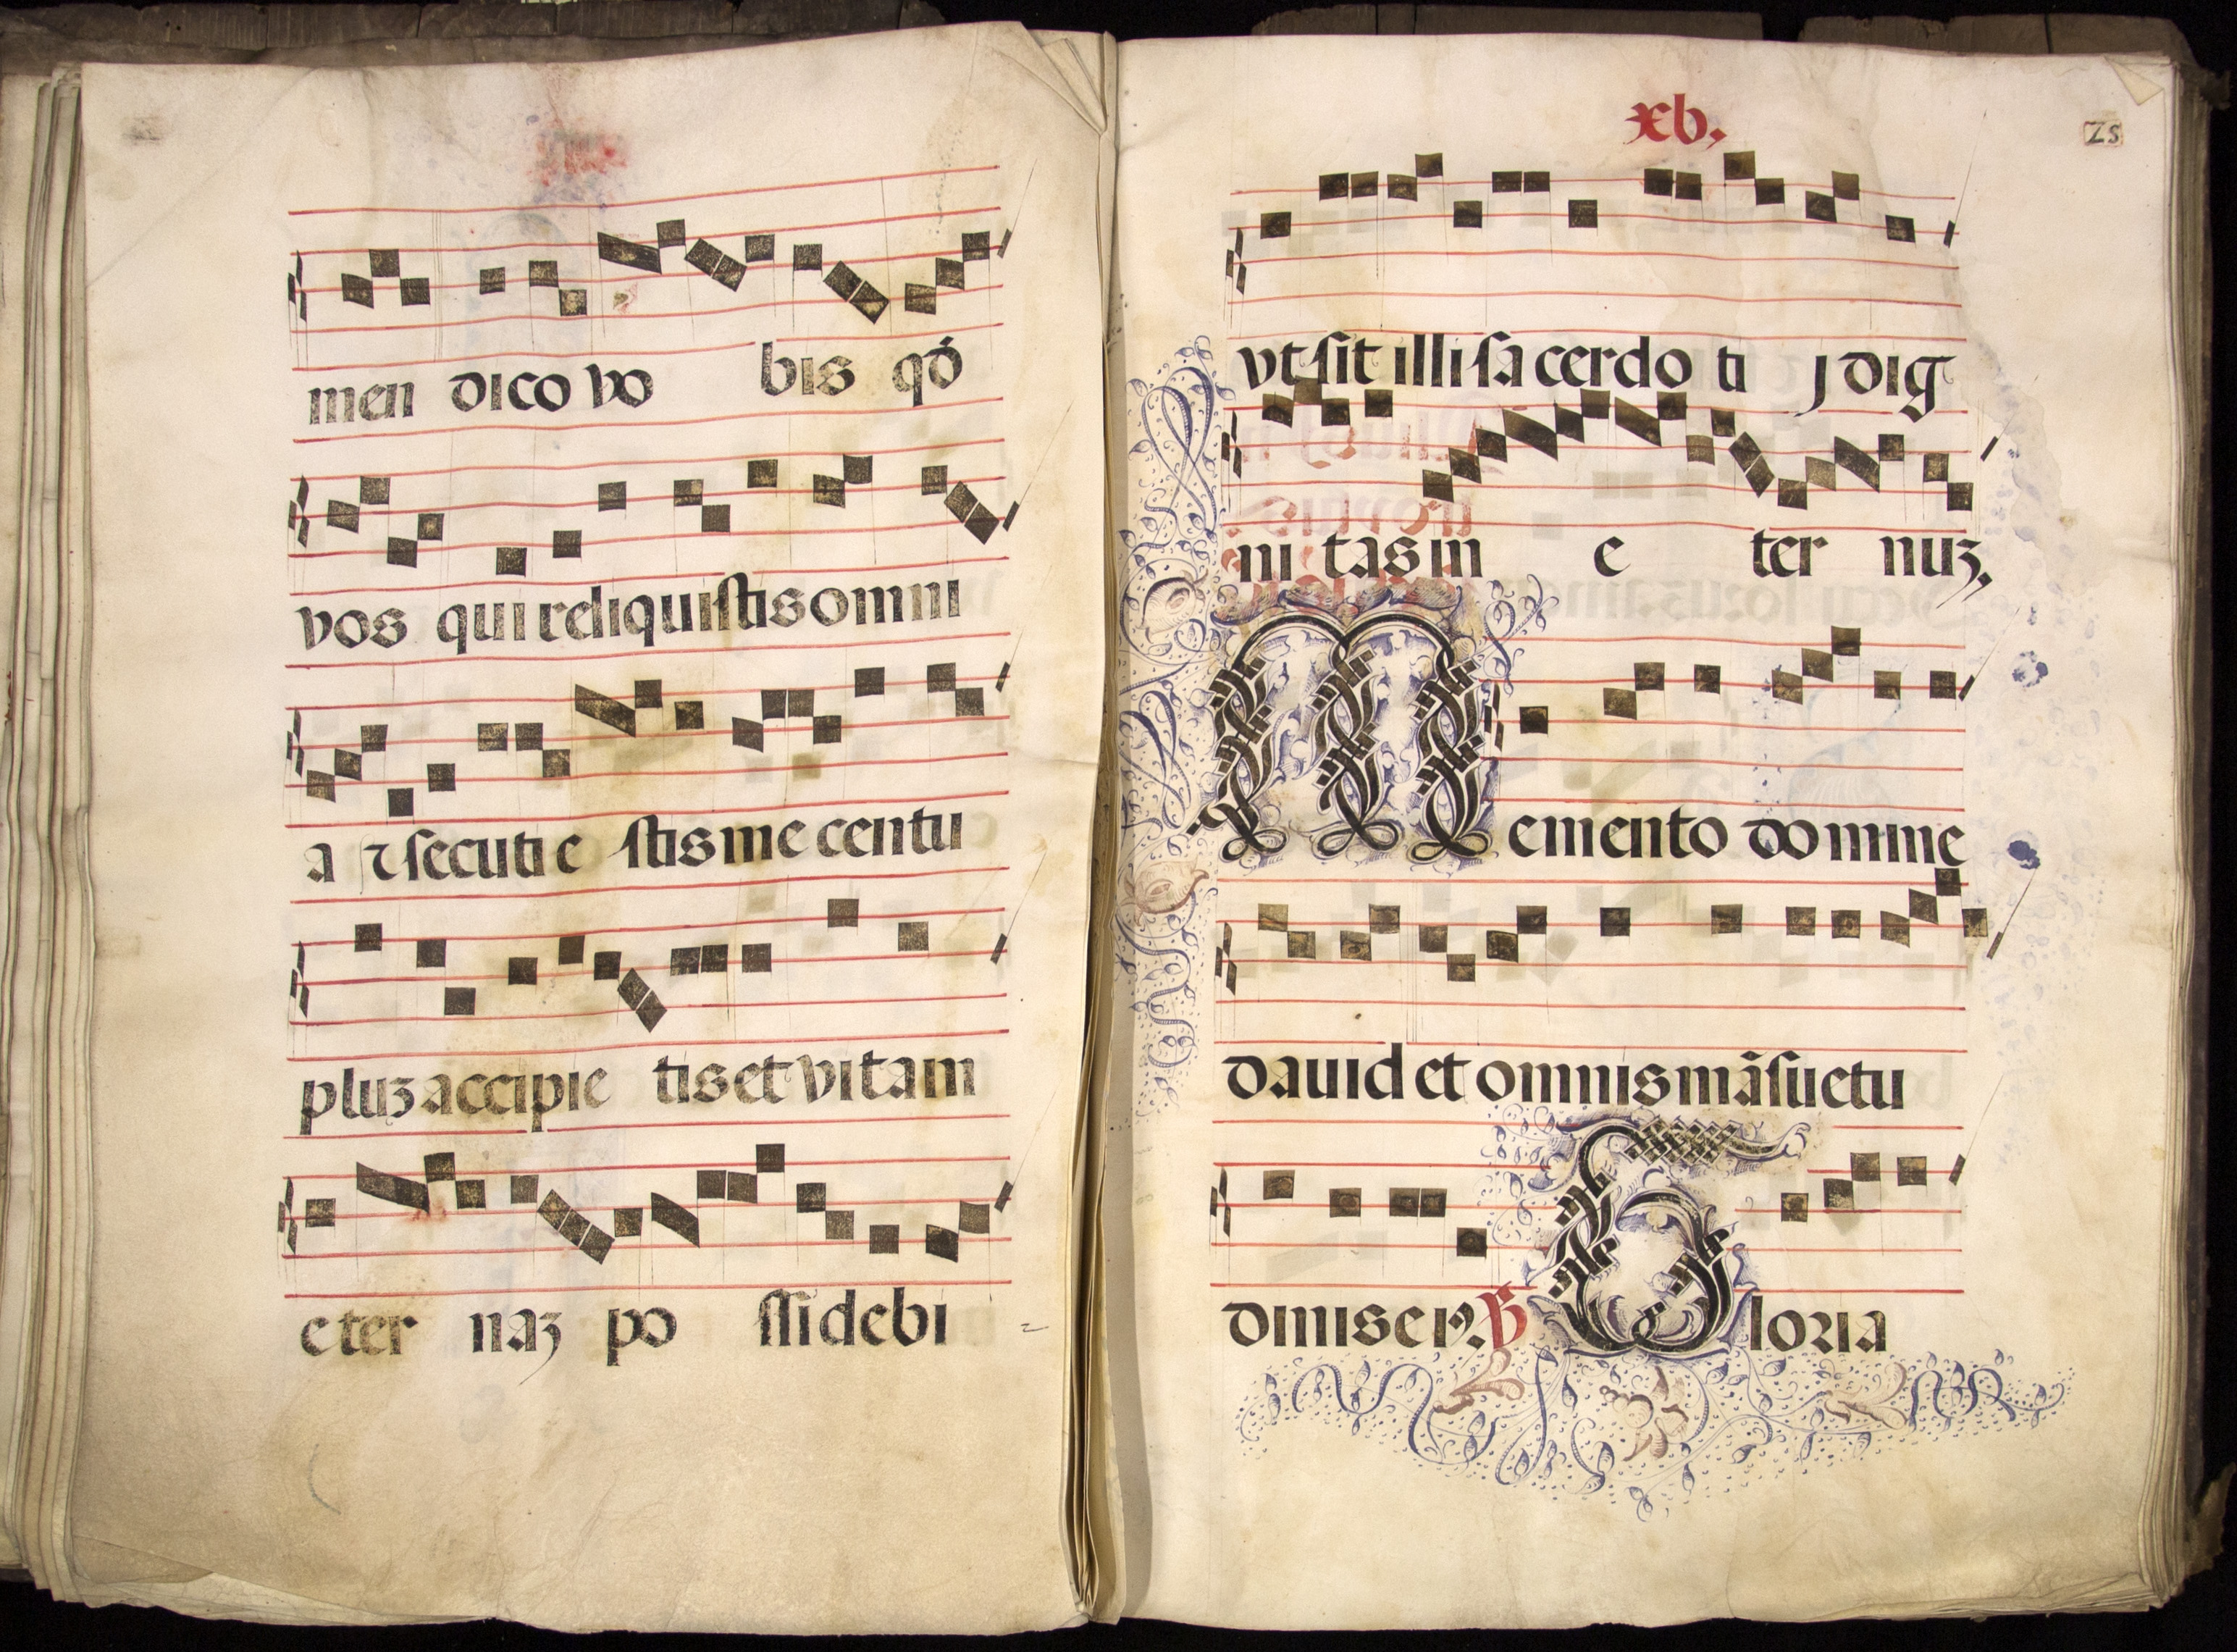 men dico vo bis qđ
vos qui reliquistis omni
a ⁊ secuti e stis me centu
pluʒ accipie tis et vitam
eter naʒ po ssidebi
xv.
25
vt sit illi sa cerdo ti j dig
ni tas in e ter nuʒ,
Memento domine
dauid et omnis mãsuetu
dinis
Gloria